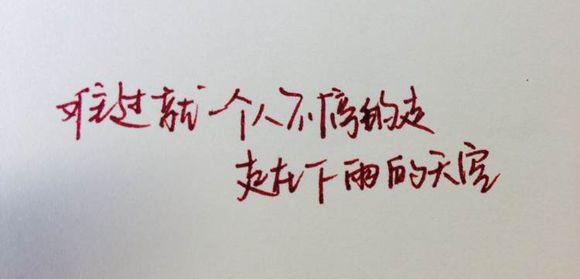 难过就一个人不停的走
走在下雨的天空